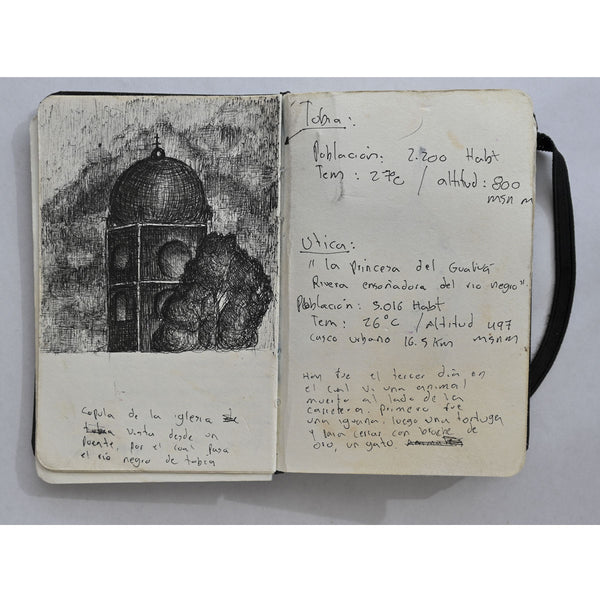 Cupula de la iglesia de
tobia vista desde un
puente, por el cual pasa
el río negro de tobia
Tobia:
Población: 2.200 Habt
Tem: 27°c / altitud: 800
msn m
Utica:
"La princesa del Gualivá
Rivera ensoñadora del rio negro"
Población: 5.016 Habt
Tem: 26°c / Altitud 497
casco urbano 16.5 Km msnm
Hoy fue el tercer dia en
el cual vi una animal
muerto al lado de la
carretera: primero fue
una iguana, luego una tortuga
y para cerrar con broche de
oro, un gato.